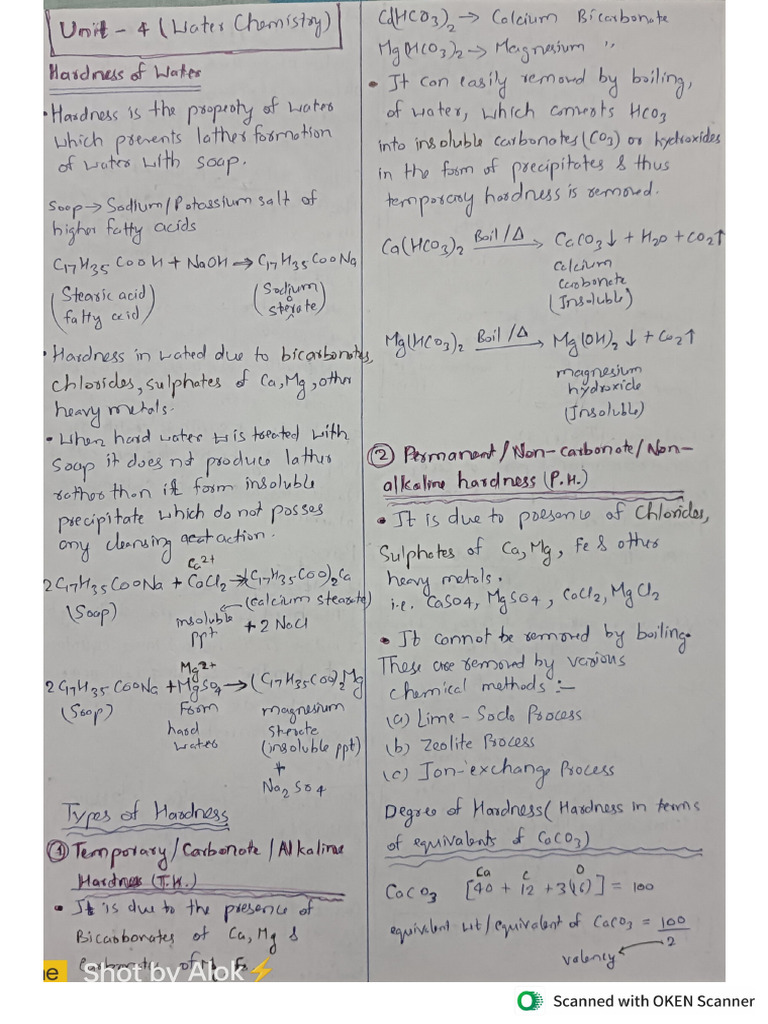 Unit - 4 (Water Chemistry)
Hardness of Water
• Hardness is the property of water
which prevents lather formation
of water with soap.
Soap → Sodium/Potassium salt of
higher fatty acids
C17H35COOH + NaOH → C17H35COONa
(Stearic acid) (Sodium
(fatty acid) sterate)
• Hardness in wated due to bicarbonates,
chlorides, sulphates of Ca, Mg, other
heavy metals.
• When hard water is treated with
soap it does not produce lather
rather than it form insoluble
precipitate which do not posses
any cleansing action.
Ca2+
2C17H35COONa + CaCl2 → (C17H35COO)2Ca
(Soap) (calcium stearate)
insoluble + 2NaCl
ppt
Mg2+
2C17H35COONa + MgSO4 → (C17H35COO)2Mg
(Soap) From magnesium
hard sterate
water (insoluble ppt)
+
Na2SO4
Types of Hardness
① Temporary/Carbonate/Alkaline
Hardness (T.H.)
• It is due to the presence of
Bicarbonates of Ca, Mg &
Shot by Alok⚡
Ca(HCO3)2 → Calcium Bicarbonate
Mg(HCO3)2 → Magnesium "
• It can easily removed by boiling,
of water, which converts HCO3
into insoluble carbonates (CO3) or hydroxides
in the form of precipitates & thus
temporary hardness is removed.
Ca(HCO3)2 Boil/Δ → CaCO3↓ + H2O + CO2↑
calcium
carbonate
(Insoluble)
Mg(HCO3)2 Boil/Δ → Mg(OH)2↓ + CO2↑
magnesium
hydroxide
(Insoluble)
② Permanent/Non-carbonate/Non-
alkaline hardness (P.H.)
• It is due to presence of Chlorides,
Sulphates of Ca, Mg, Fe & other
heavy metals.
i.e. CaSO4, MgSO4, CaCl2, MgCl2
• It cannot be removed by boiling.
These are removed by various
chemical methods :-
(a) Lime - Soda Process
(b) Zeolite Process
(c) Ion-exchange Process
Degree of Hardness (Hardness in terms
of equivalents of CaCO3)
Ca C O
CaCO3 [40 + 12 + 3(16)] = 100
equivalent wt/equivalent of CaCO3 = 100/2
valency
Scanned with OKEN Scanner